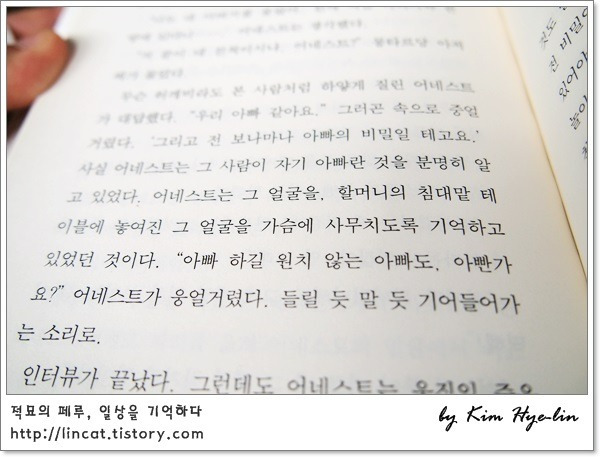 "저 분이 네 왼쪽이시니, 어네스트?" 몽타르당 아저
씨가 물었다.
무슨 허깨비라도 본 사람처럼 하얗게 질린 어네스트
가 대답했다. "우리 아빠 같아요." 그러곤 속으로 중얼
거렸다. '그리고 전 보나마나 아빠의 비밀일 테고요.'
사실 어네스트는 그 사람이 자기 아빠란 것을 분명히 알
고 있었다. 어네스트는 그 얼굴을, 할머니의 침대맡 테
이블에 놓여진 그 얼굴을 가슴에 사무치도록 기억하고
있었던 것이다. "아빠 하길 원치 않는 아빠도, 아빤가
요?" 어네스트가 웅얼거렸다. 들릴 듯 말 듯 기어들어가
는 소리로.
인터뷰가 끝났다. 그런데도 어네스트는
것도
전 비밀
있어야
놀이
적묘의 페루, 일상을 기억하다
http://lincat.tistory.com
by Kim Hye-lin